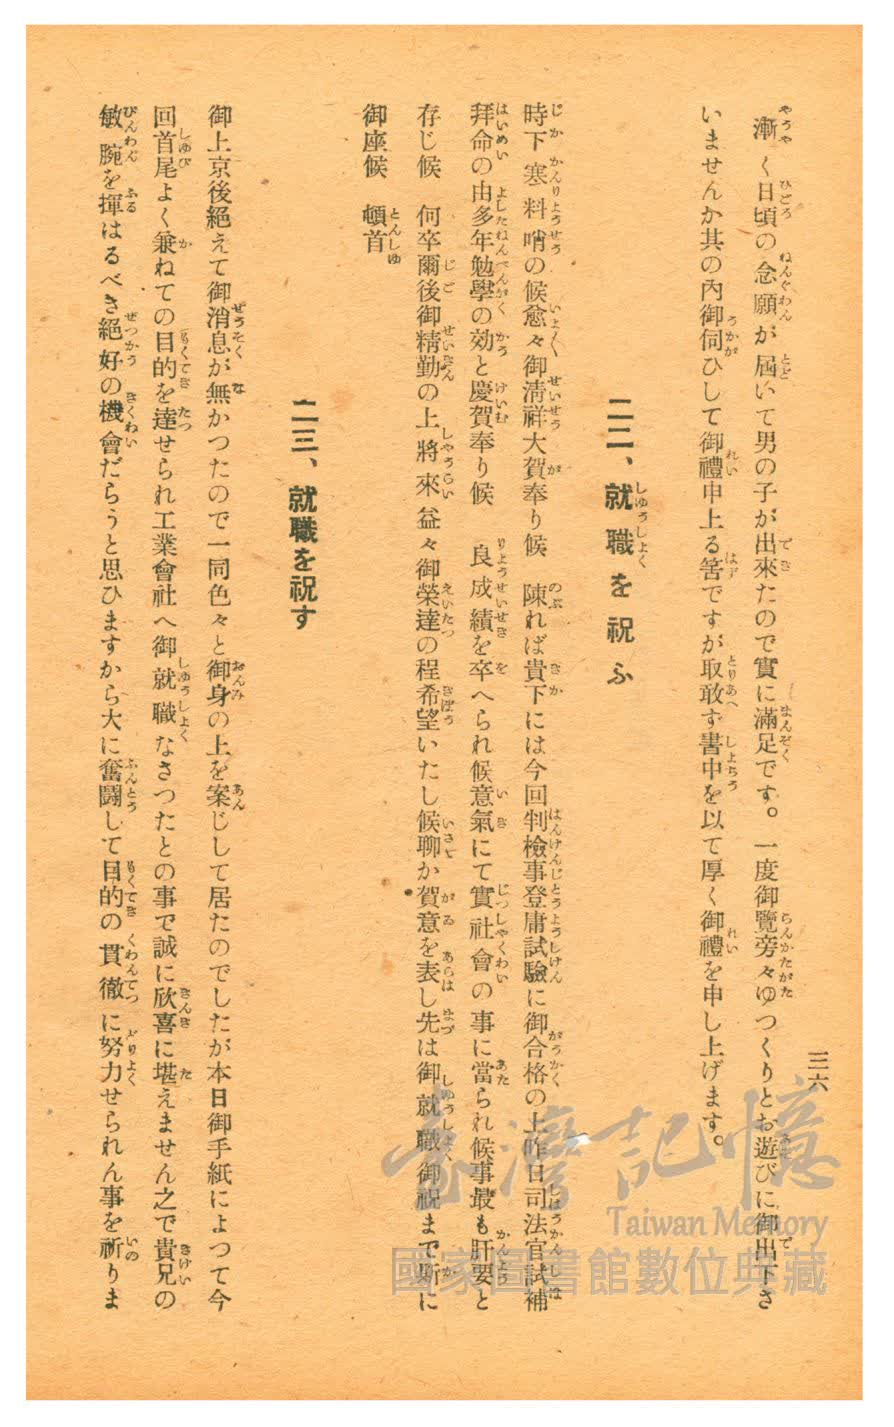 三六
漸く日頃の念願が屆いて男の子が出來たので實に滿足です。一度御覽旁々ゆつくりとお遊びに御出下さ
いませんか其の內御伺ひして御禮申上る筈ですが取敢ず書中を以て厚く御禮を申し上げます。
二二、就職を祝ふ
時下寒料哨の候愈々御淸祥大賀奉り候 陳れば貴下には今回判檢事登庸試驗に御合格の上昨日司法官試補
拜命の由多年勉學の効と慶賀奉り候 良成績を卒へられ候意氣にて實社會の事に當られ候事最も肝要と
存じ候 何卒爾後御精勤の上將來益々御榮達の程希望いたし候聊か賀意を表し先は御就職御祝まで斯に
御座候 頓首
二三、就職を祝す
御上京後絕えて御消息が無かつたので一同色々と御身の上を案じして居たのでしたが本日御手紙によつて今
回首尾よく兼ねての目的を達せられ工業會社へ御就職なさつたとの事で誠に欣喜に堪えません之で貴兄の
敏腕を揮はるべき絕好の機會だらうと思ひますから大に奮鬪して目的の貫徹に努力せられん事を祈りま
臺灣記憶
Taiwan Memory
國家圖書館數位典藏